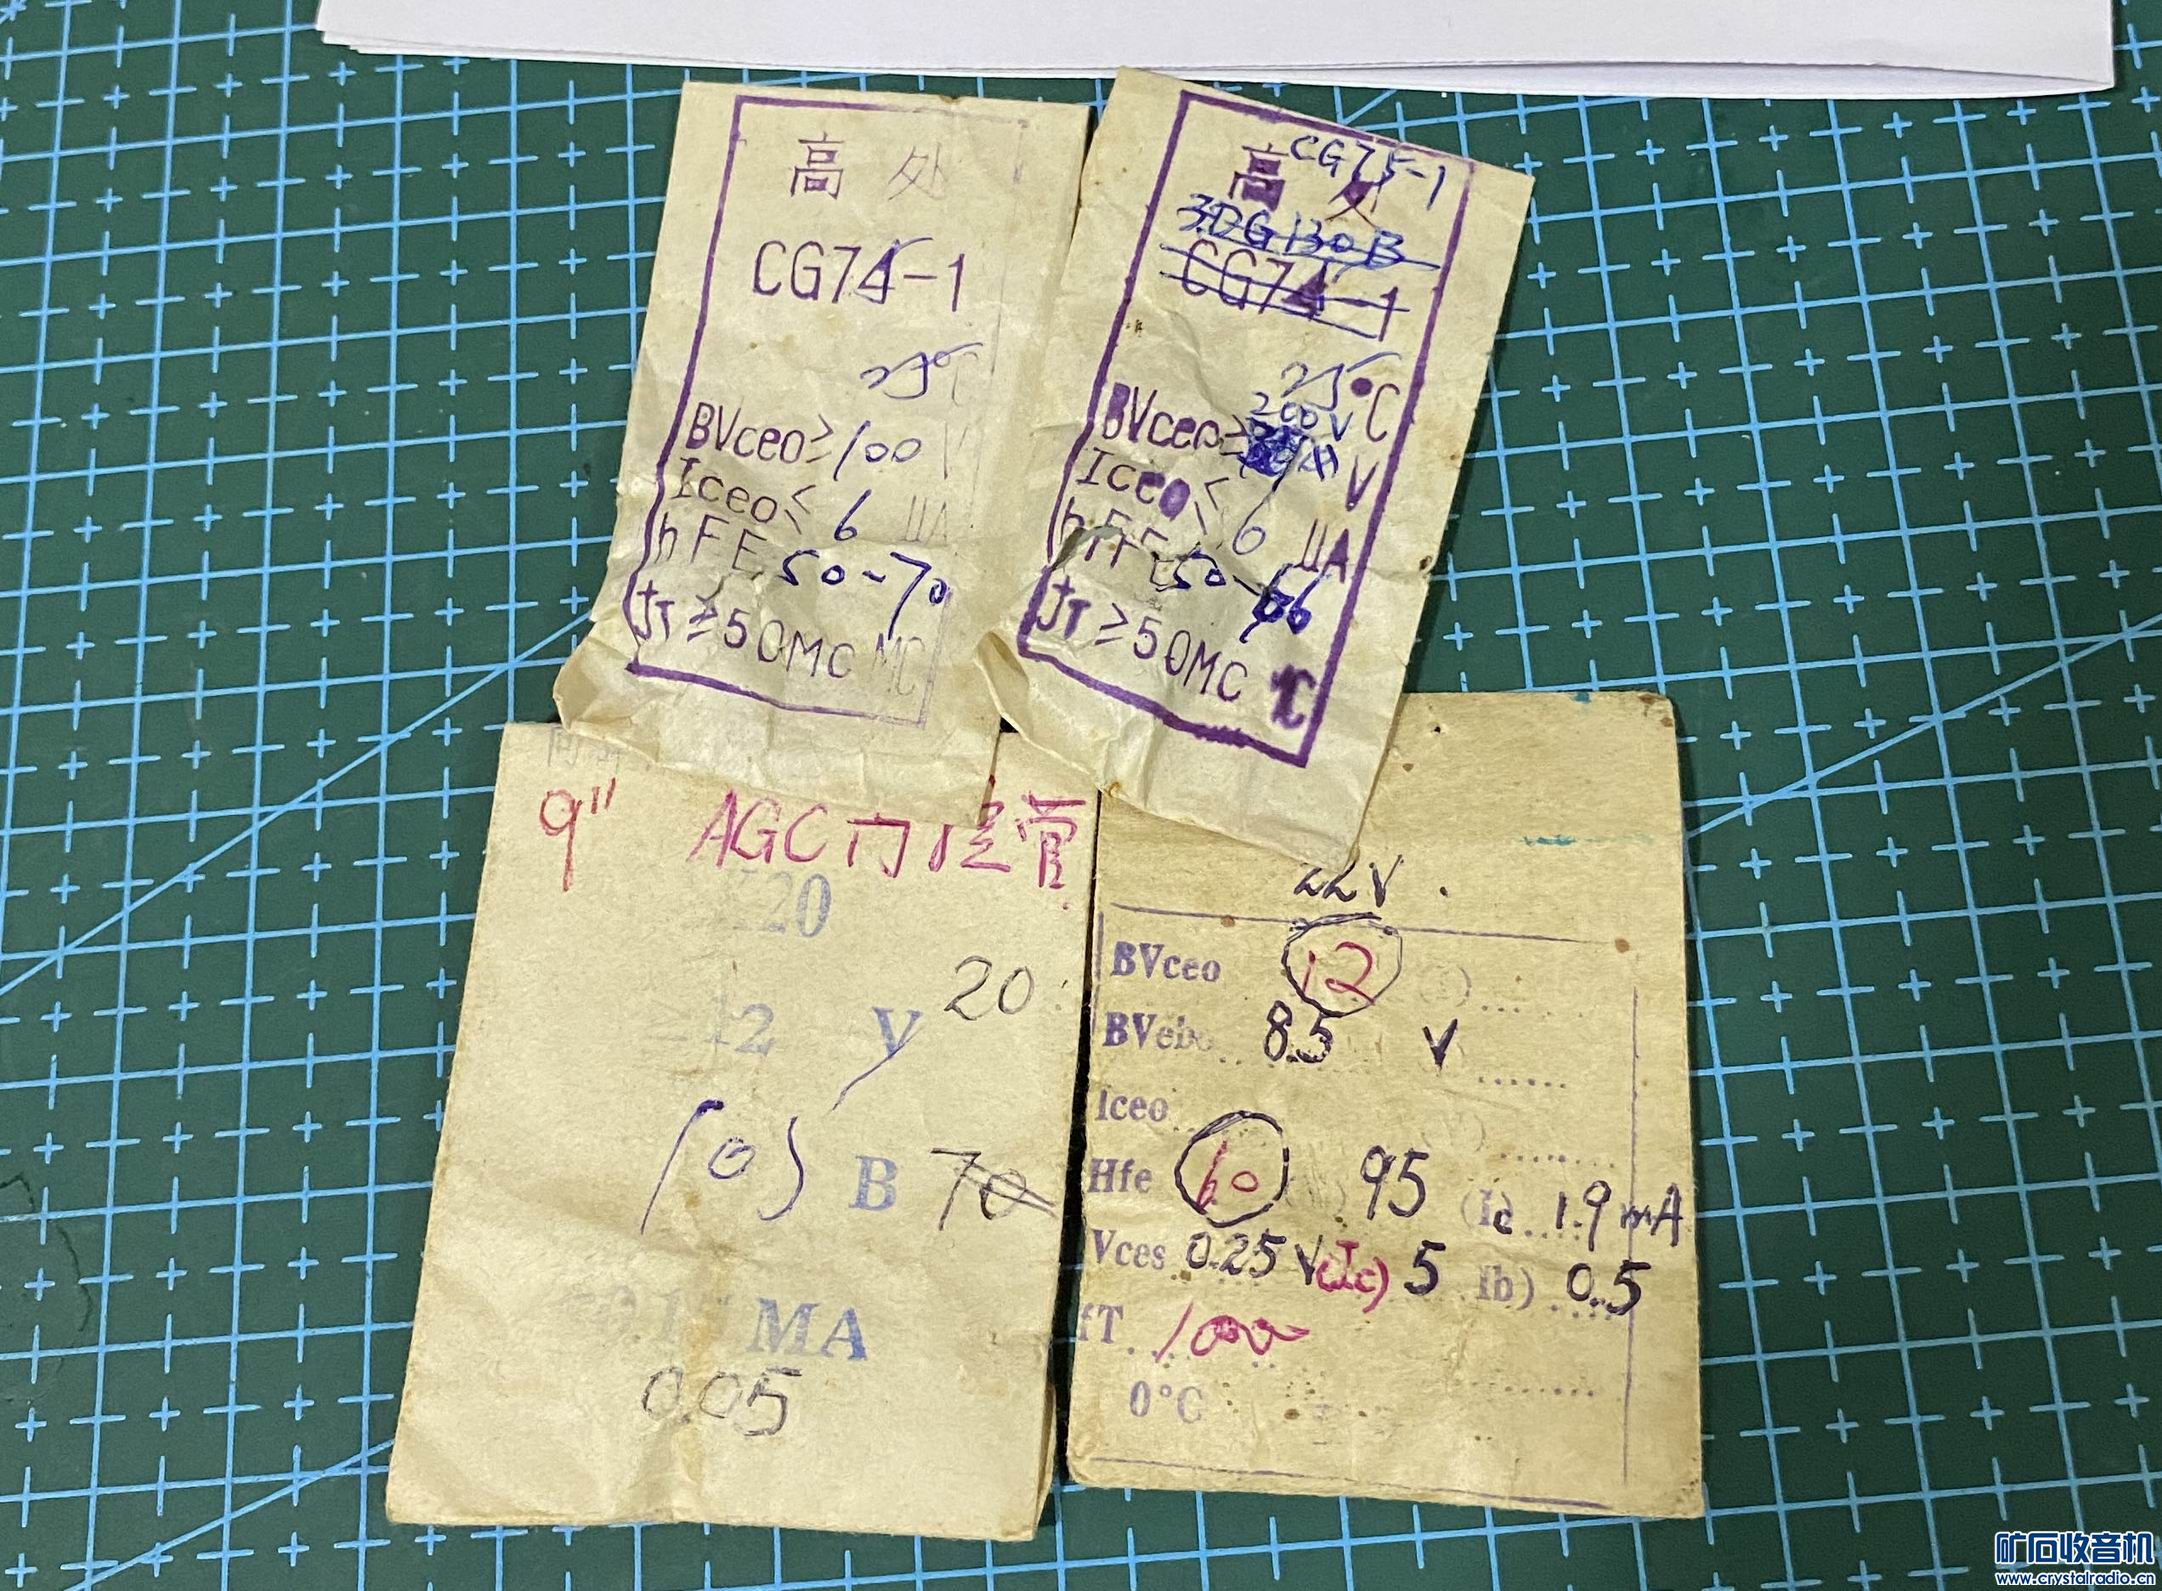 高 处
CG75-1
25℃
BVceo≥100 V
Iceo≤ 6 μA
hFE 50-70
fT≥50MC MC
CG75-1
高 处
3DG130B
CG74-1
25°C
200V
BVceo≥ V
Iceo≤ 6 μA
hFE 50-
fT≥50MC
9" AGC门控管
20
20
12 V
(0) B 70
MA
0.05
22V.
BVceo 12
BVebo 8.5 V
Iceo
Hfe 60 95 Ic 1.9mA
Vces 0.25 V (Ic) 5 Ib) 0.5
fT 100
0°C
矿石收音机
www.crystalradio.cn